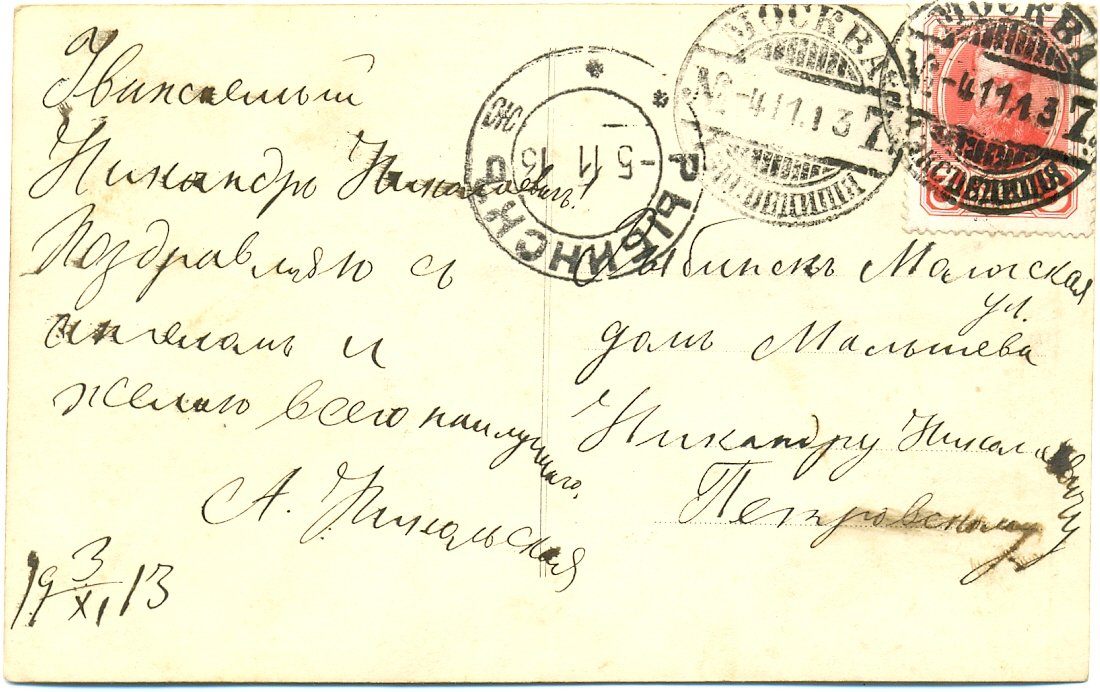 Уважаемый
Никандръ Николаевич!
Поздравляю с
ангеломъ и
желаю всего наилучшаго,
А. Никольская
19 3/XI 13
МОСКВА
-4.11.13
7
ЭКСПЕДИЦІЯ
МОСКВА
-4.11.13
7
ЭКСПЕДИЦІЯ
РЫБИНСКЪ
-5 11 13
Рыбинскъ Мологская
ул.
домъ Малышева
Никандру Николаевичу
Петровскому